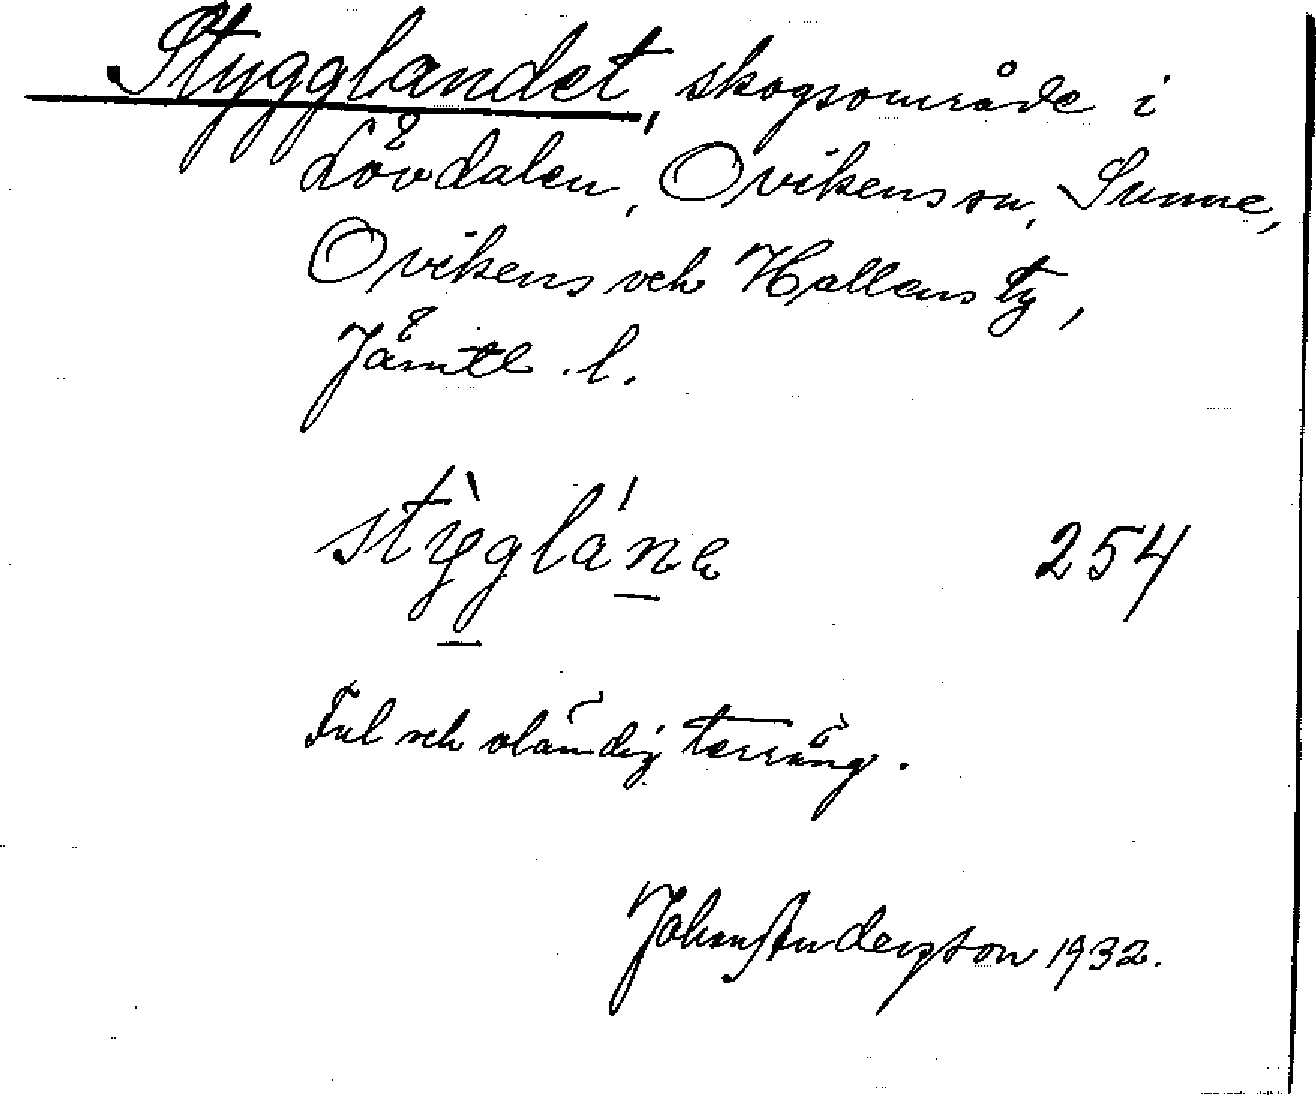 Stygglandet, skogsområde i
Lövdalen, Ovikens sn, Sunne,
Ovikens och Hallens tg,
Jämtl. l.
stỳgláne 254
Ful och oländig terräng.
Johan Anderzson 1932.